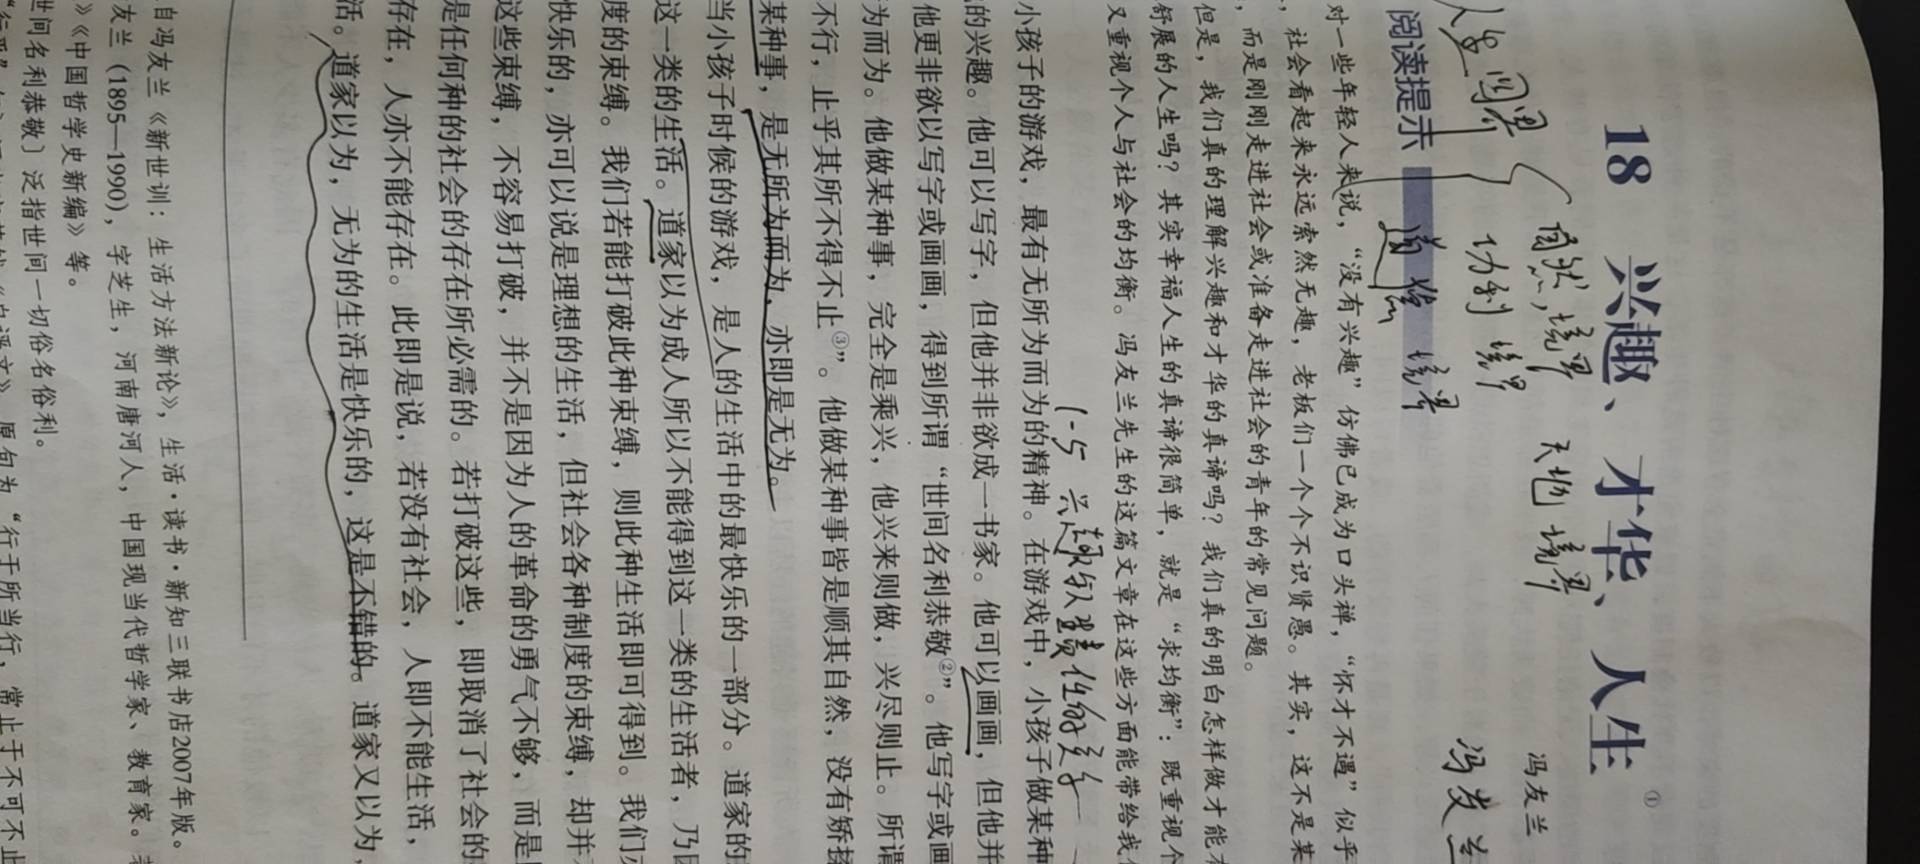 18 兴趣、才华、人生①
冯友兰
自然境界 天地境界
人生境界
功利境界
冯友兰
道德境界
阅读提示
对一些年轻人来说，“没有兴趣”仿佛已成为口头禅，“怀才不遇”似乎
社会看起来永远索然无趣，老板们一个个不识贤愚。其实，这不是某
，而是刚刚走进社会或准备走进社会的青年的常见问题。
但是，我们真的理解兴趣和才华的真谛吗？我们真的明白怎样做才能有
舒展的人生吗？其实幸福人生的真谛很简单，就是“求均衡”：既重视个
又重视个人与社会的均衡。冯友兰先生的这篇文章在这些方面能带给我们
1-5 兴趣与
小孩子的游戏，最有无所为而为的精神。在游戏中，小孩子做某种
的兴趣。他可以写字，但他并非欲成一书家。他可以画画，但他并
他更非欲以写字或画画，得到所谓“世间名利恭敬②”。他写字或画
为而为。他做某种事，完全是乘兴，他兴来则做，兴尽则止。所谓
不行，止乎其所不得不止③”。他做某种事皆是顺其自然，没有矫揉
某种事，是无所为而为，亦即是无为。
当小孩子时候的游戏，是人的生活中的最快乐的一部分。道家的
这一类的生活。道家以为成人所以不能得到这一类的生活者，乃
度的束缚。我们若能打破此种束缚，则此种生活即可得到。我们
快乐的，亦可以说是理想的生活，但社会各种制度的束缚，却并
这些束缚，不容易打破，并不是因为人的革命的勇气不够，而是
是任何种的社会的存在所必需的。若打破这些，即取消了社会的
存在，人亦不能存在。此即是说，若没有社会，人即不能生活，
活。道家以为，无为的生活是快乐的，这是不错的。道家又以为，
自冯友兰《新世训：生活方法新论》，生活·读书·新知三联书店2007年版。
友兰（1895—1990），字芝生，河南唐河人，中国现当代哲学家、教育家。
》《中国哲学史新编》等。
世间名利恭敬〕泛指世间一切俗名俗利。
原句为“行于所当行，常止于不可不止